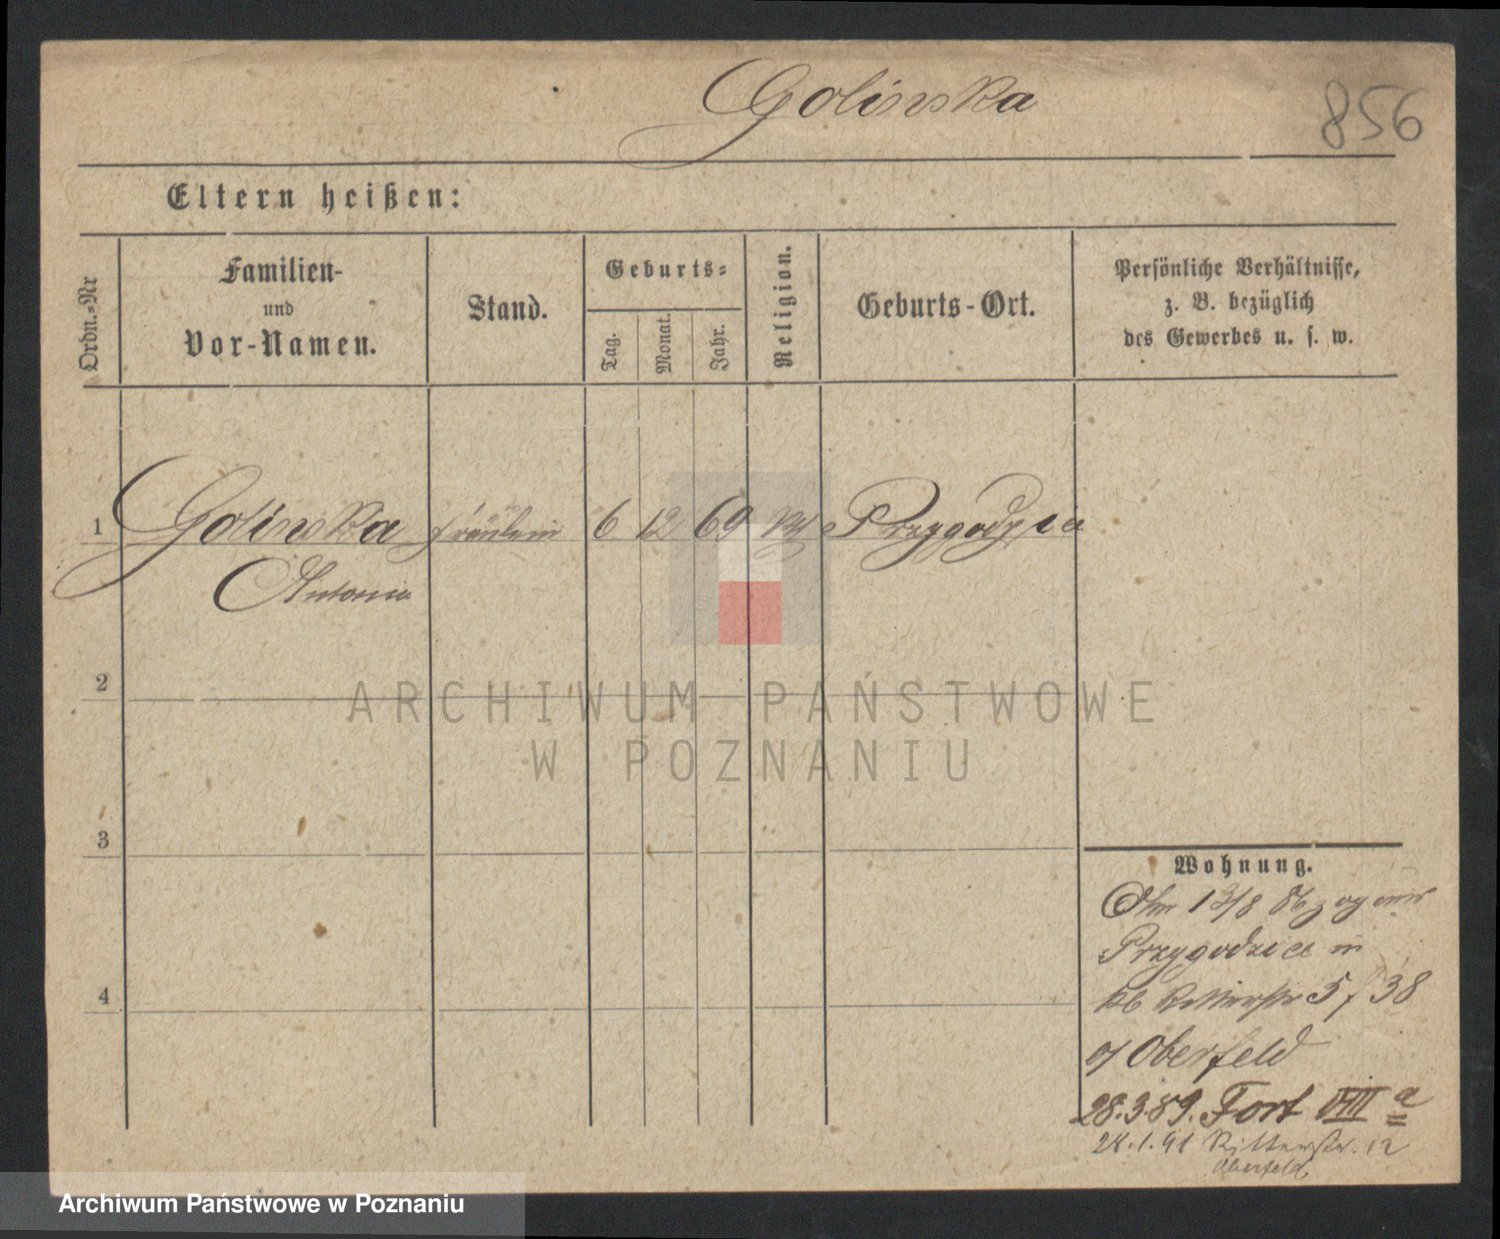 Golinska
856
Eltern heißen:
Ordn.-Nr
Familien-
und
Vor-Namen.
Stand.
Geburts-
Tag.
Monat.
Jahr.
Religion.
Geburts-Ort.
Persönliche Verhältnisse,
z. B. bezüglich
des Gewerbes u. s. w.
1 Golinska Fräulein 6 12 69 Przygodzice
Antonie
2
ARCHIWUM PAŃSTWOWE
W POZNANIU
3
4
Wohnung.
Am 13/8 86 zog aus
Przygodzice in
5 38
Oberfeld
28.3.89. Fort VIII a
28.1.91 Ritterstr. 12
Oberfeld
Archiwum Państwowe w Poznaniu